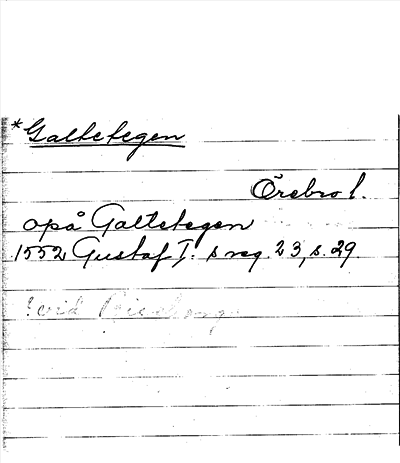 *Galtetegen
Örebro l.
opå Galtetegen
1552 Gustaf I: s reg. 23, s. 29